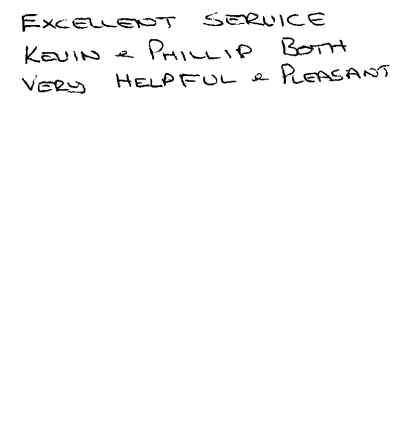 EXCELLENT SERVICE
KEVIN & PHILLIP BOTH
VERY HELPFUL & PLEASANT